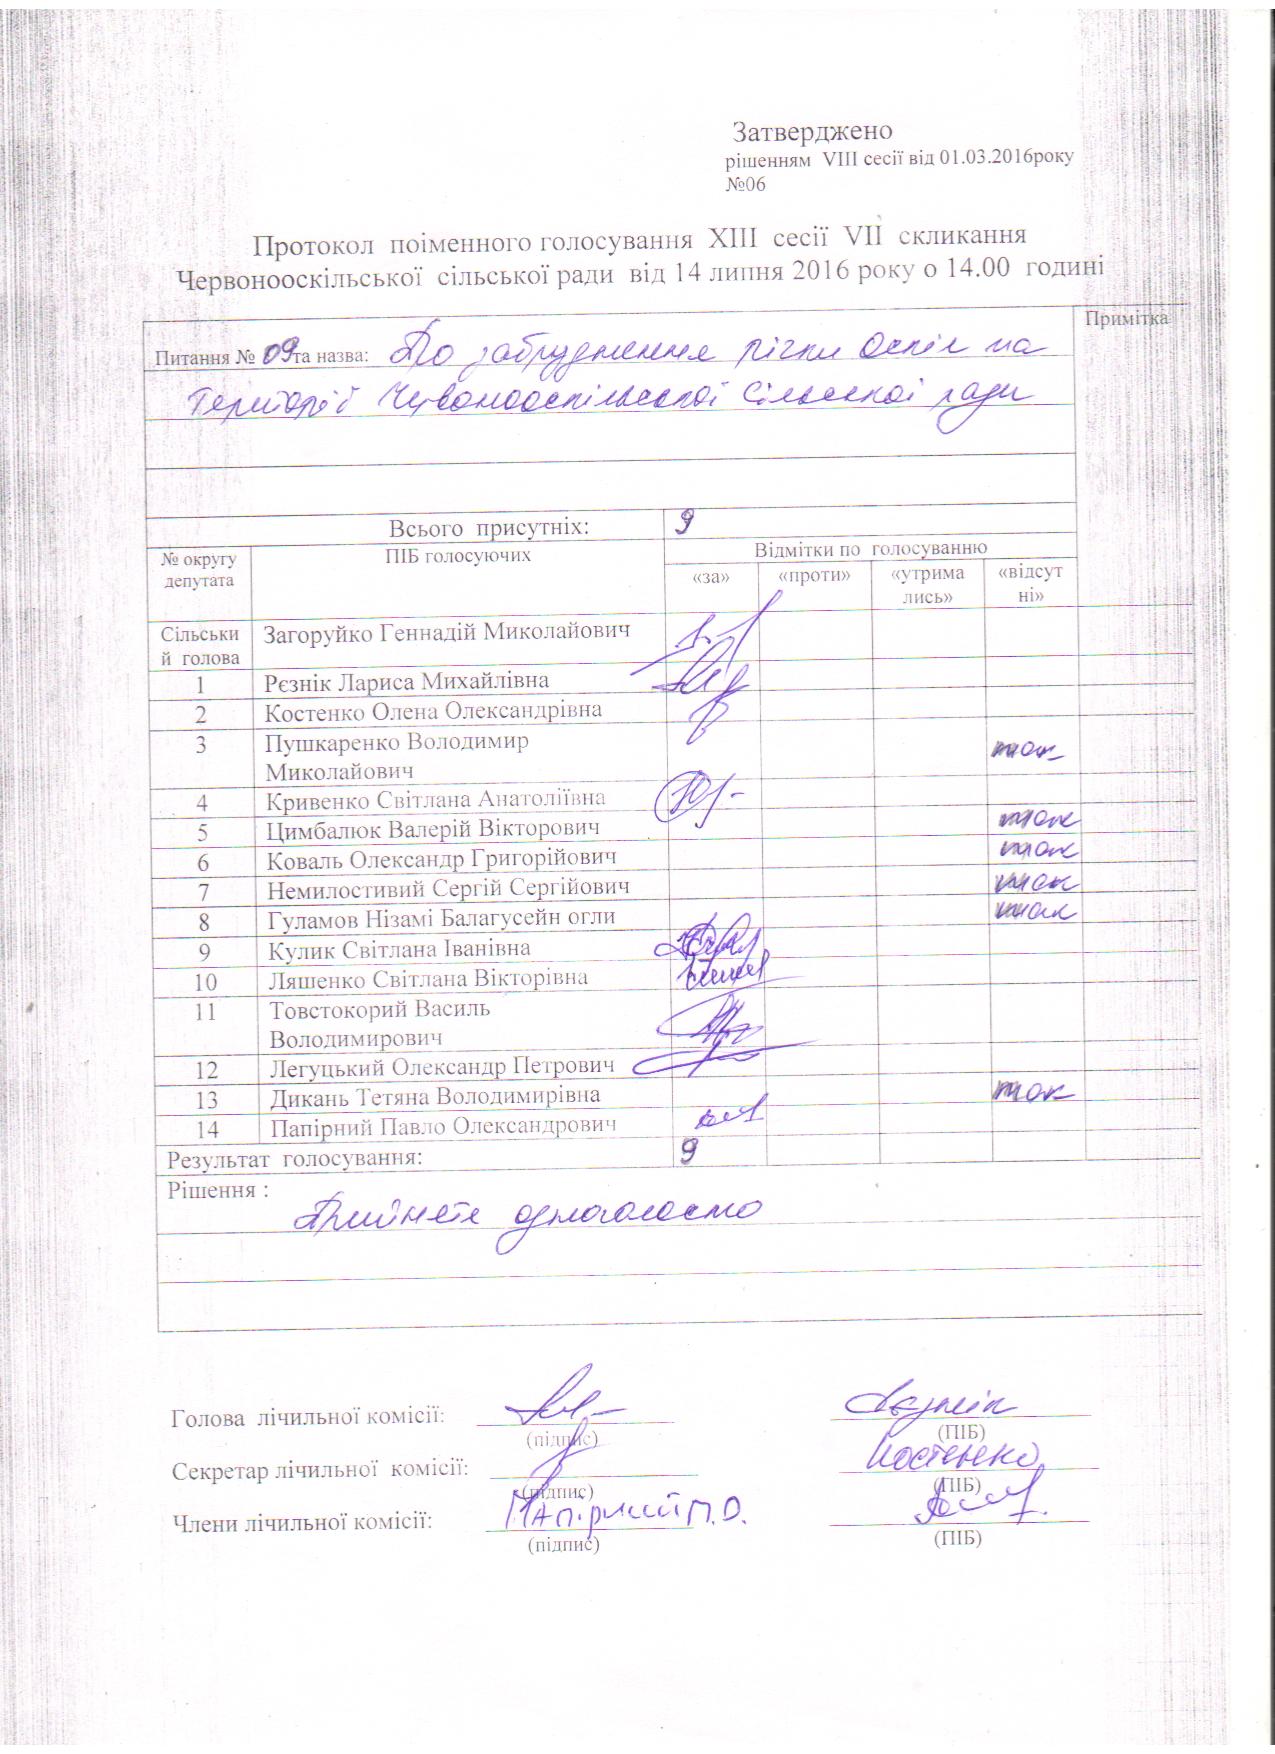 Затверджено
рішенням VIII сесії від 01.03.2016року
№06
Протокол поіменного голосування XIII сесії VII скликання
Червонооскільської сільської ради від 14 липня 2016 року о 14.00 годині
Примітка
Питання № 09 та назва: По забруднення річки Оскіл на
Території Червонооскільської сільської ради
Всього присутніх: 9
№ округу депутата
ПІБ голосуючих
Відмітки по голосуванню
«за» «проти» «утрима лись» «відсут ні»
Сільськи й голова Загоруйко Геннадій Миколайович
1 Рєзнік Лариса Михайлівна
2 Костенко Олена Олександрівна
3 Пушкаренко Володимир
Миколайович
4 Кривенко Світлана Анатоліївна
5 Цимбалюк Валерій Вікторович
6 Коваль Олександр Григорійович
7 Немилостивий Сергій Сергійович
8 Гуламов Нізамі Балагусейн огли
9 Кулик Світлана Іванівна
10 Ляшенко Світлана Вікторівна
11 Товстокорий Василь
Володимирович
12 Легуцький Олександр Петрович
13 Дикань Тетяна Володимирівна
14 Папірний Павло Олександрович
Результат голосування: 9
Рішення :
Прийнято одноголосно
Голова лічильної комісії:
(підпис) (ПІБ)
Секретар лічильної комісії: Костенко
(підпис) (ПІБ)
Члени лічильної комісії: Папірний П.О.
(підпис) (ПІБ)